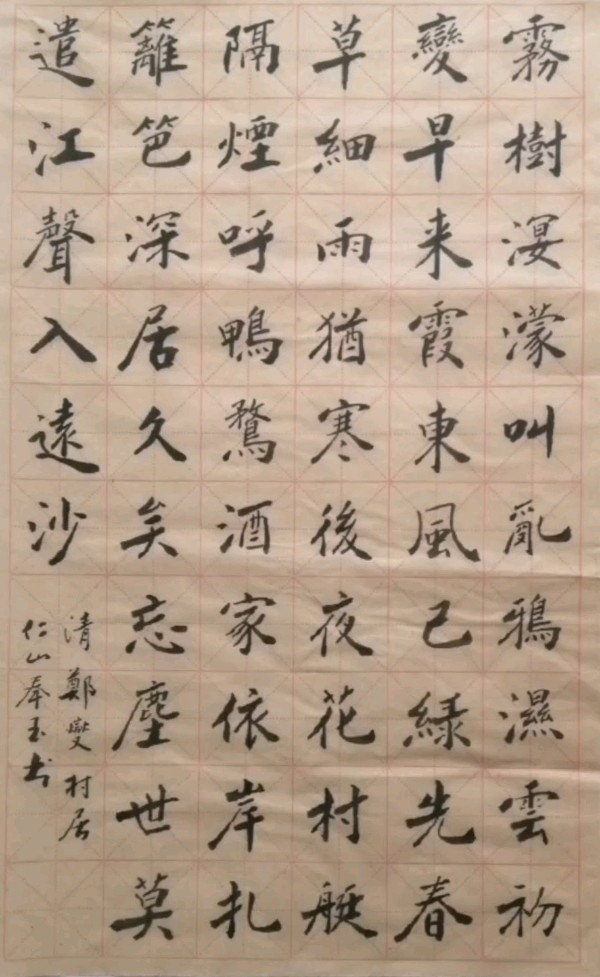 霧樹溟濛叫亂鴉濕雲初
變早来霞東風已綠先春
草細雨猶寒後夜花村艇
隔煙呼鴨鶩酒家依岸扎
籬笆深居久矣忘塵世莫
遣江聲入遠沙
清鄭燮村居
仁山奉玉书